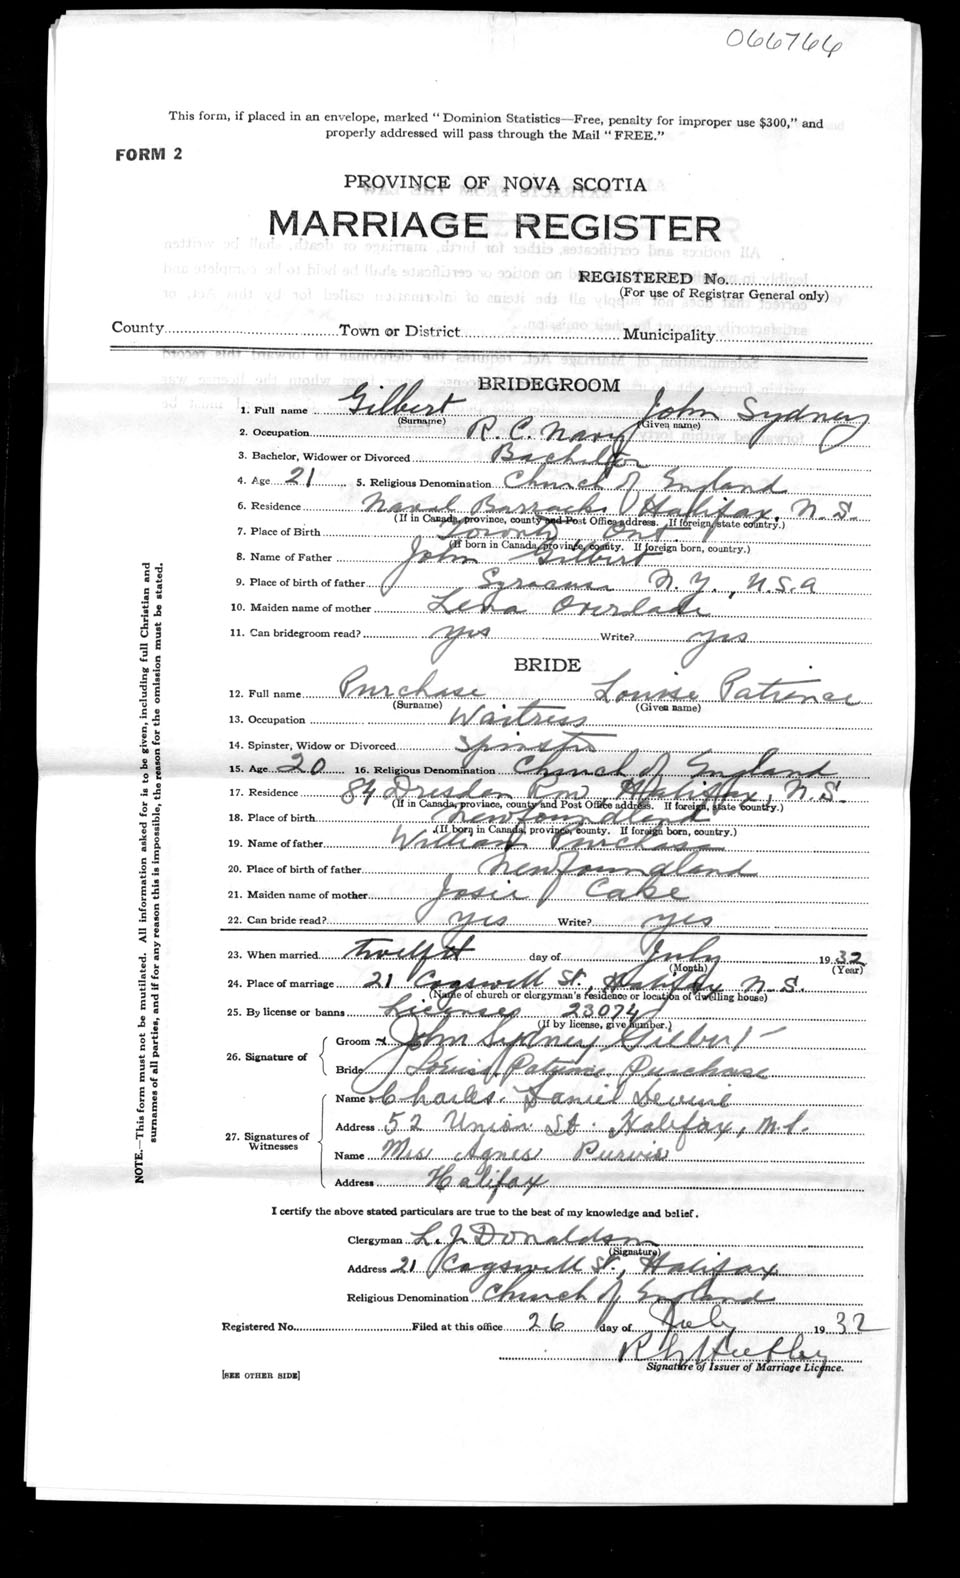 066766
This form, if placed in an envelope, marked " Dominion Statistics—Free, penalty for improper use $300," and
properly addressed will pass through the Mail " FREE."
FORM 2
PROVINCE OF NOVA SCOTIA
MARRIAGE REGISTER
REGISTERED No.
(For use of Registrar General only)
County Town or District Municipality
BRIDEGROOM
1. Full name Gilbert John Sydney
(Surname) (Given name)
2. Occupation R. C. Navy
3. Bachelor, Widower or Divorced Bachelor
4. Age 21 5. Religious Denomination Church of England
6. Residence Naval Barracks Halifax, N.S.
(If in Canada, province, county and Post Office address. If foreign, state country.)
7. Place of Birth Toronto Ont.
(If born in Canada, province, county. If foreign born, country.)
8. Name of Father John Gilbert
9. Place of birth of father Syracuse N.Y., U.S.A
10. Maiden name of mother Lena
11. Can bridegroom read? yes Write? yes
BRIDE
12. Full name Purchase Louise Patience
(Surname) (Given name)
13. Occupation Waitress
14. Spinster, Widow or Divorced Spinster
15. Age 20 16. Religious Denomination Church of England
17. Residence 84 Dresden Row, Halifax, N.S.
(If in Canada, province, county and Post Office address. If foreign, state country.)
18. Place of birth Newfoundland
(If born in Canada, province, county. If foreign born, country.)
19. Name of father William Purchase
20. Place of birth of father Newfoundland
21. Maiden name of mother Josie Cake
22. Can bride read? yes Write? yes
23. When married twelfth day of July 1932
(Month) (Year)
24. Place of marriage 21 Cogswell St., Halifax N.S.
(Name of church or clergyman's residence or location of dwelling house)
25. By license or banns License 23074
(If by license, give number.)
26. Signature of
Groom John Sydney Gilbert
Bride Louise Patience Purchase
27. Signatures of Witnesses
Name Charles Daniel Devine
Address 52 Union St. Halifax, N.S.
Name Mrs Agnes Purvis
Address Halifax
I certify the above stated particulars are true to the best of my knowledge and belief.
Clergyman L. J. Donaldson
(Signature)
Address 21 Cogswell St., Halifax
Religious Denomination Church of England
Registered No. Filed at this office 26 day of July 1932
Signature of Issuer of Marriage Licence.
[SEE OTHER SIDE]
NOTE.—This form must not be mutilated. All information asked for is to be given, including full Christian and
surnames of all parties, and if for any reason this is impossible, the reason for the omission must be stated.